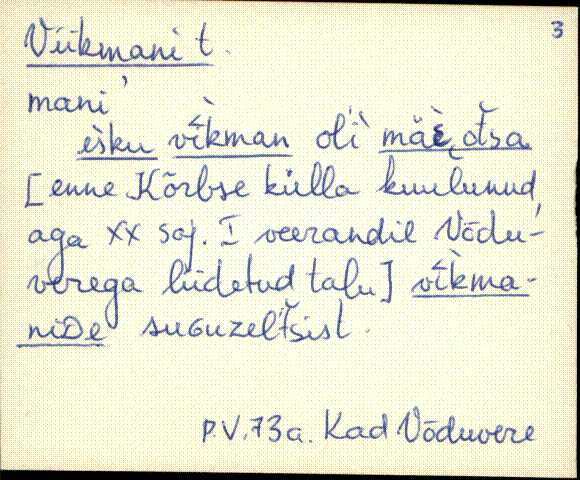 3
Viikmani t.
mani'
ešku vîkman oli mäe̬ otsa
[enne Kõrbse külla kuulunud,
aga XX saj. I veerandil Võdu-
verega liidetud talu] vîkma-
niDe suGuzeltšist.
P.V. 73 a. Kad Võduvere